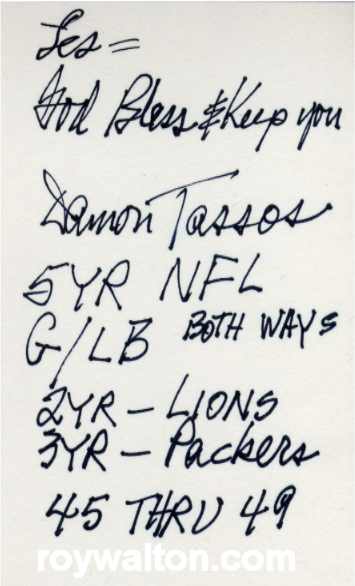 Les =
God Bless & Keep you
Damon Tassos
5YR NFL
G/LB BOTH WAYS
2YR - LIONS
3YR - Packers
45 THRU 49
roywalton.com